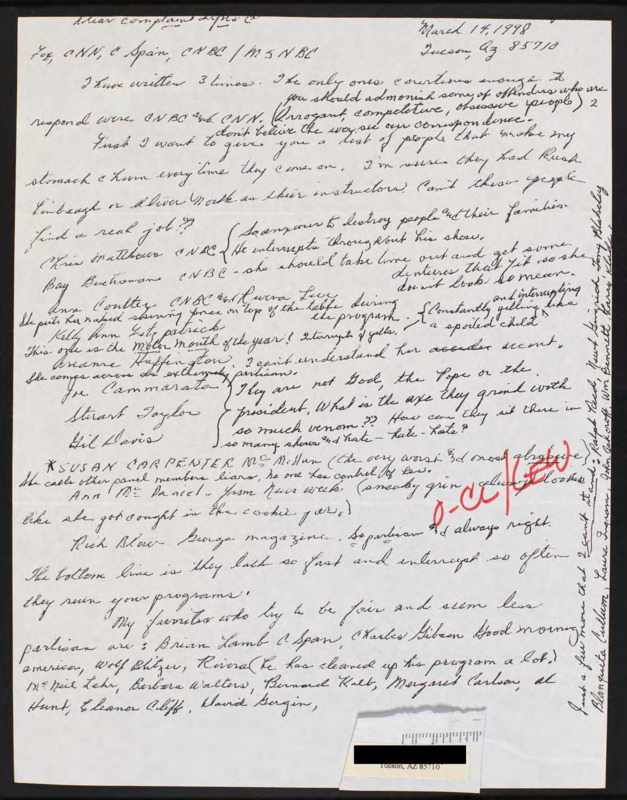 Dear Complaint Dept's
March 14, 1998
Tucson, Az 85710
Fox, CNN, C Span, CNBC / MSNBC
I have written 3 times. The only ones courteous enough to
respond were CNBC and CNN. (Arrogant, competetive, obsessive people) 2
you should admonish some of offenders who are
don't believe the way, see our correspondence.
First I want to give you a list of people that make my
stomach churn every time they come on. I'm sure they had Rush
Limbaugh or Oliver North as their instructors. Can't these people
find a real job??
Chris Matthews CNBC { Scanjours to destroy people and their families
He interrupts throughout his show.
Bay Buchanan CNBC - she should take time out and get some
dentures that fit so she
doesn't look so mean.
Ann Coulter CNBC and Rivera Live
She puts her naked skinny on top of the table during
the program. { Constantly yelling and interrupting like
a spoiled child"
Kelly Ann Fitzpatrick
This one is the Motor Mouth of the year! Interrupts & yells.
Areanne Huffington. I can't understand her accent.
She comes across as extremely partisan.
Joe Cammarata
Stuart Taylor
Gil Davis
{ They are not God, the Pope or the
president, What is the axe they grind with
so much venom?? How can they sit there in
so many shows and hate - hate - hate?
*SUSAN CARPENTER Mc Millan (the very worst and most abrasive)
She calls other panel members liars, no one has control of her.
Ann Mc Daniel - from News week (sneaky grin always looks
like she got caught in the cookie jar.)
O-CL/KEW
Rich Blow - George magazine. So partisan and always right.
The bottom line is they talk so fast and interrupt so often
they ruin your programs.
My favorites who try to be fair and seem less
partisan are: Brian Lamb C Span, Charles Gibson Good morning
america, Wolf Blitzer, Rivera (he has cleaned up his program a lot.)
McNeil Lehr, Barbara Walters, Bernard Kalb, Margaret Carlson, Al
Hunt, Eleanor Cliff, David Gergin,
Just a few more that I can't stand - Ralph Reed, Newt Gingrich, Tony Blakeley
Blanquita Cullum, Laura Ingram, John Ashcroft, Wm Bennett,
Tucson, AZ 85710